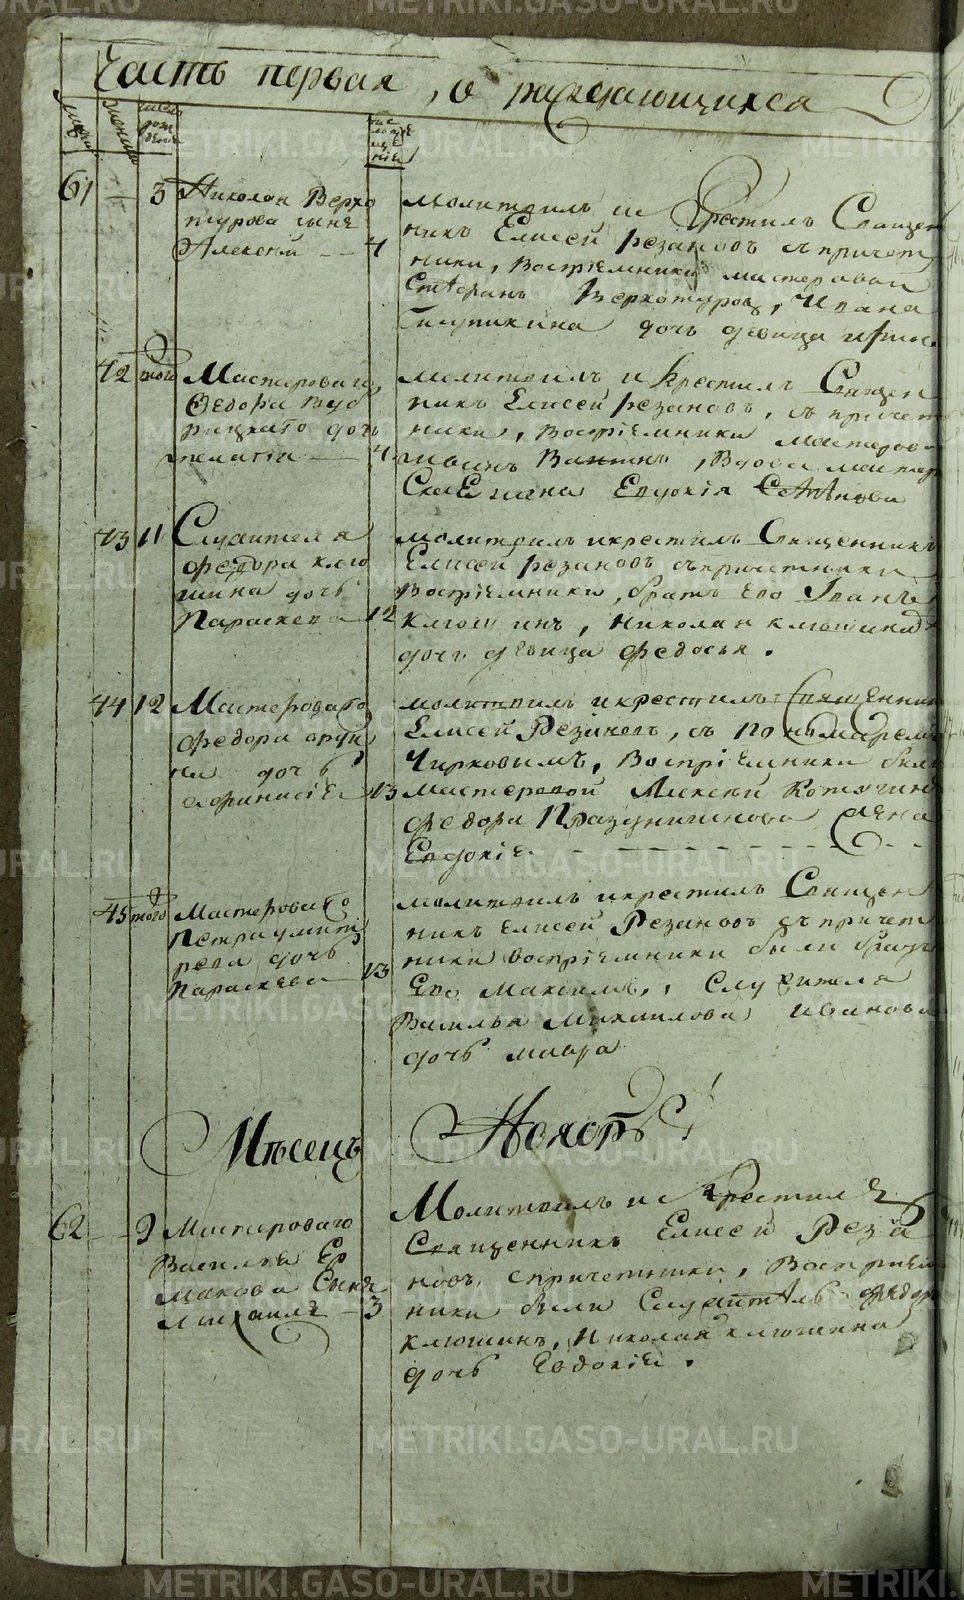 Часть первая, о раждающихся
число рож дение
число кре ще ния
61 — 3 Николая Верхо
турова сынъ
Алексей — — 4
молитвилъ и Крестилъ Священ
никъ Елисей резановъ съ причет
ники, восприемники мастеровой
Стефанъ Верхотуров, Ивана
дочь девица
42 того Мастероваго
Федора
рицкаго дочь
пелагия — 4
молитвилъ и крестилъ Священ
никъ Елисей резановъ, съ причет
ники, восприемники мастеров
вдова мастер
ска Евдокия
43 11 Служителя
федора клю
шина дочь
Параскева 12
молитвилъ и крестилъ Священникъ
Елисей резановъ съ причетники
восприемники, братъ Его Iванъ
Клюшинъ, николая клюшина
дочь девица федосья.
44 12 Мастероваго
федора
на дочь
13
молитвилъ и крестилъ Священник
Елисей Резановъ, съ пономаремъ
Чирковымъ, Восприемники были
мастеровой Алексей
федора жена
Евдокия
45 того Мастероваго
Петра дмит
рева дочь
Параскева — 13
молитвилъ и крестилъ Священ
никъ Елисей Резановъ съ причет
ники восприемники были братъ
Его Максимъ, служителя
Василья михаилова иванова
дочь мавра
Мѣсецъ Ноябрь
62 — 2 Мастероваго
Василья Ер
макова Сынъ
михаилъ — 3
Молитвилъ и крестилъ
Священникъ Елисей Реза
новъ, с причетники, Восприем
ники были Служитель федор
клюшинъ, николая клюшина
дочь Евдокия.
METRIKI.GASO-URAL.RU